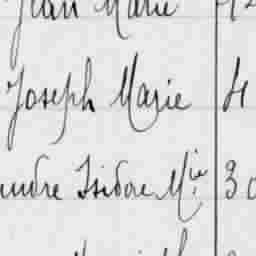 Jean Marie
Joseph Marie 4
Isidore Mie 30